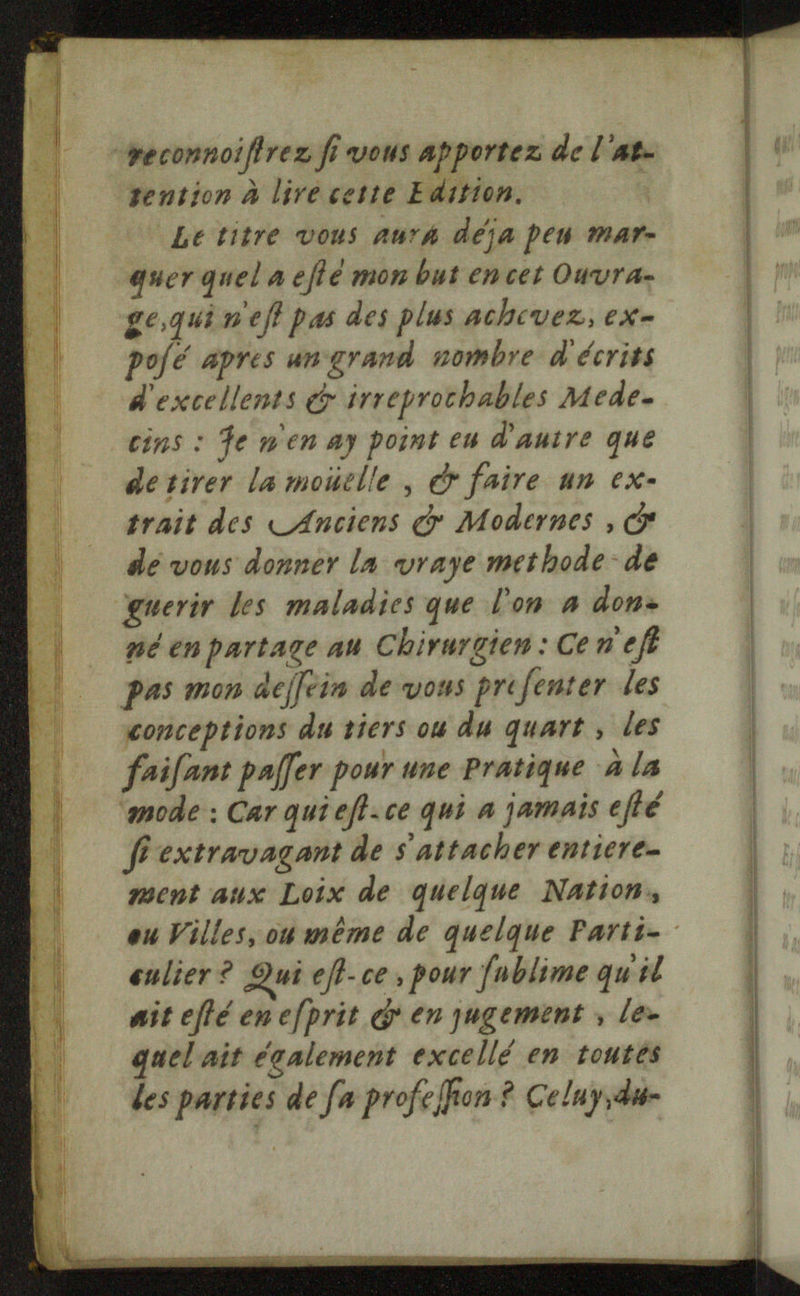 reconnoiſtrez ſi vous apportez de l'at-
tention à lire cette Edition.
Le titre vous aura déja peu mar-
quer quel a eſté mon but en cet Ouvra-
ge, qui n'eſt pas des plus achevez, ex-
poſé apres un grand nombre d'écrits
d'excellents & irreprochables Mede-
cins : Je n'en ay point eu d'autre que
de tirer la moüelle , & faire un ex-
trait des Anciens & Modernes , &
de vous donner la vraye methode de
guerir les maladies que l'on a don-
né en partage au Chirurgien : Ce n'eſt
pas mon deſſein de vous preſenter les
conceptions du tiers ou du quart , les
faiſant paſſer pour une Pratique à la
mode : Car qui eſt-ce qui a jamais eſté
ſi extravagant de s'attacher entiere-
ment aux Loix de quelque Nation,
ou Villes, ou même de quelque Parti-
culier ? Qui eſt-ce , pour ſublime qu'il
ait eſté en eſprit & en jugement , le-
quel ait également excellé en toutes
les parties de ſa profeſſion ? Celuy, du-